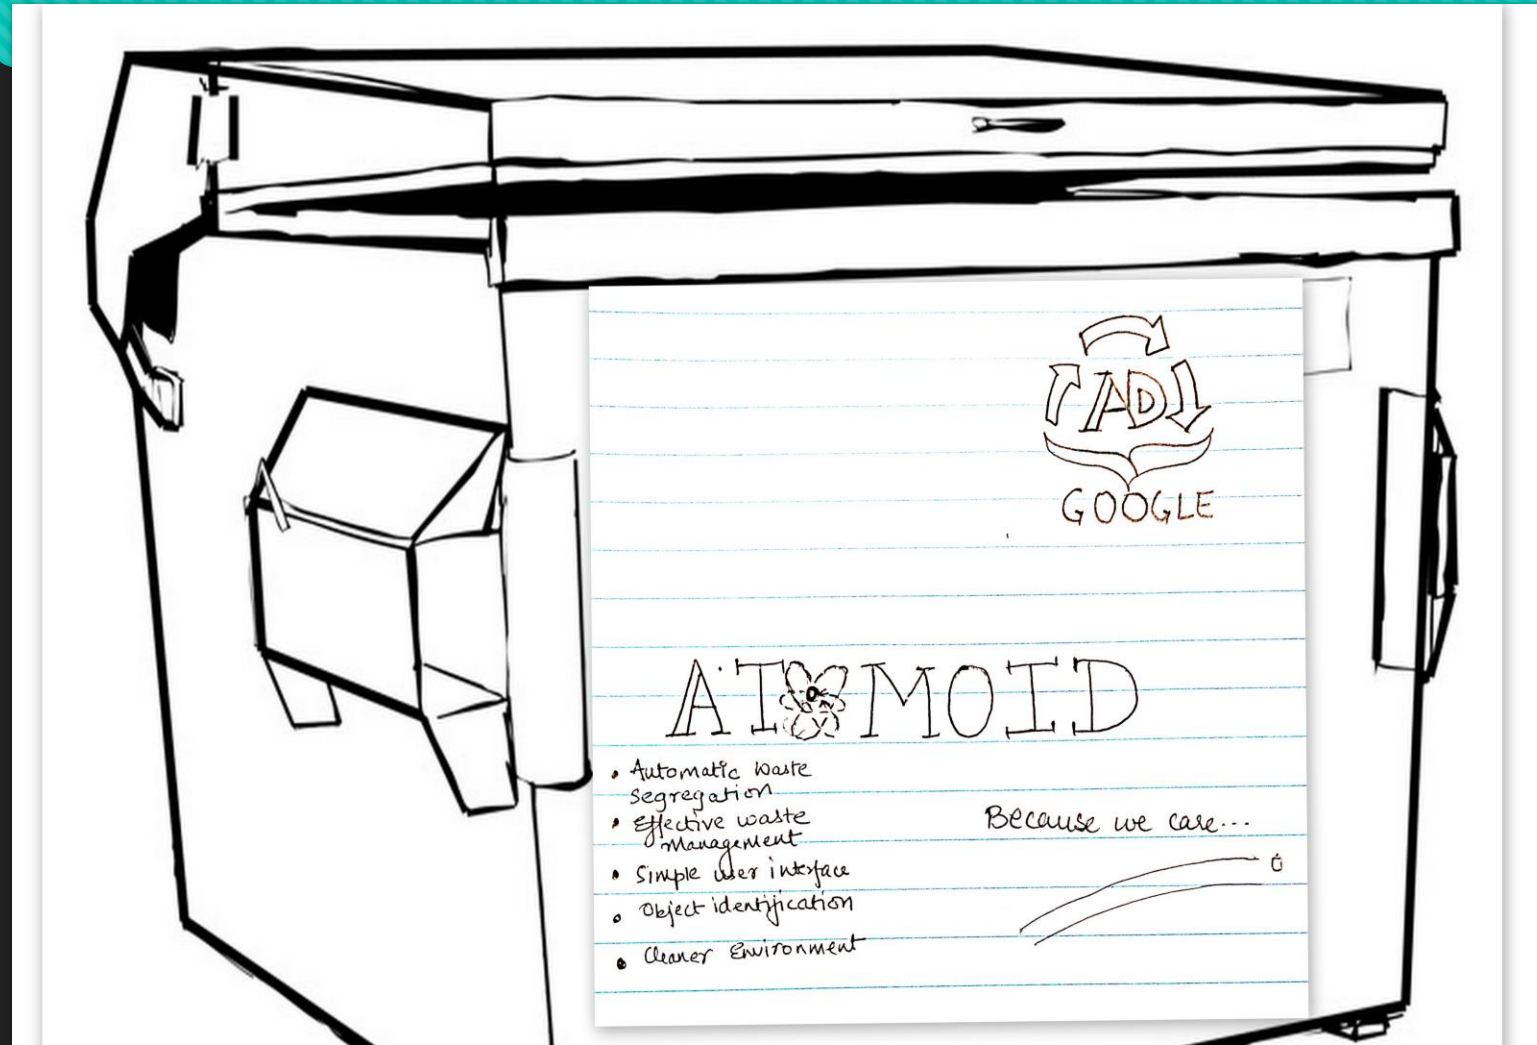 AD
GOOGLE
ATOMOID
• Automatic waste
segregation
• Effective waste
management
Because we care...
• Simple user interface
• Object identification
• Cleaner Environment